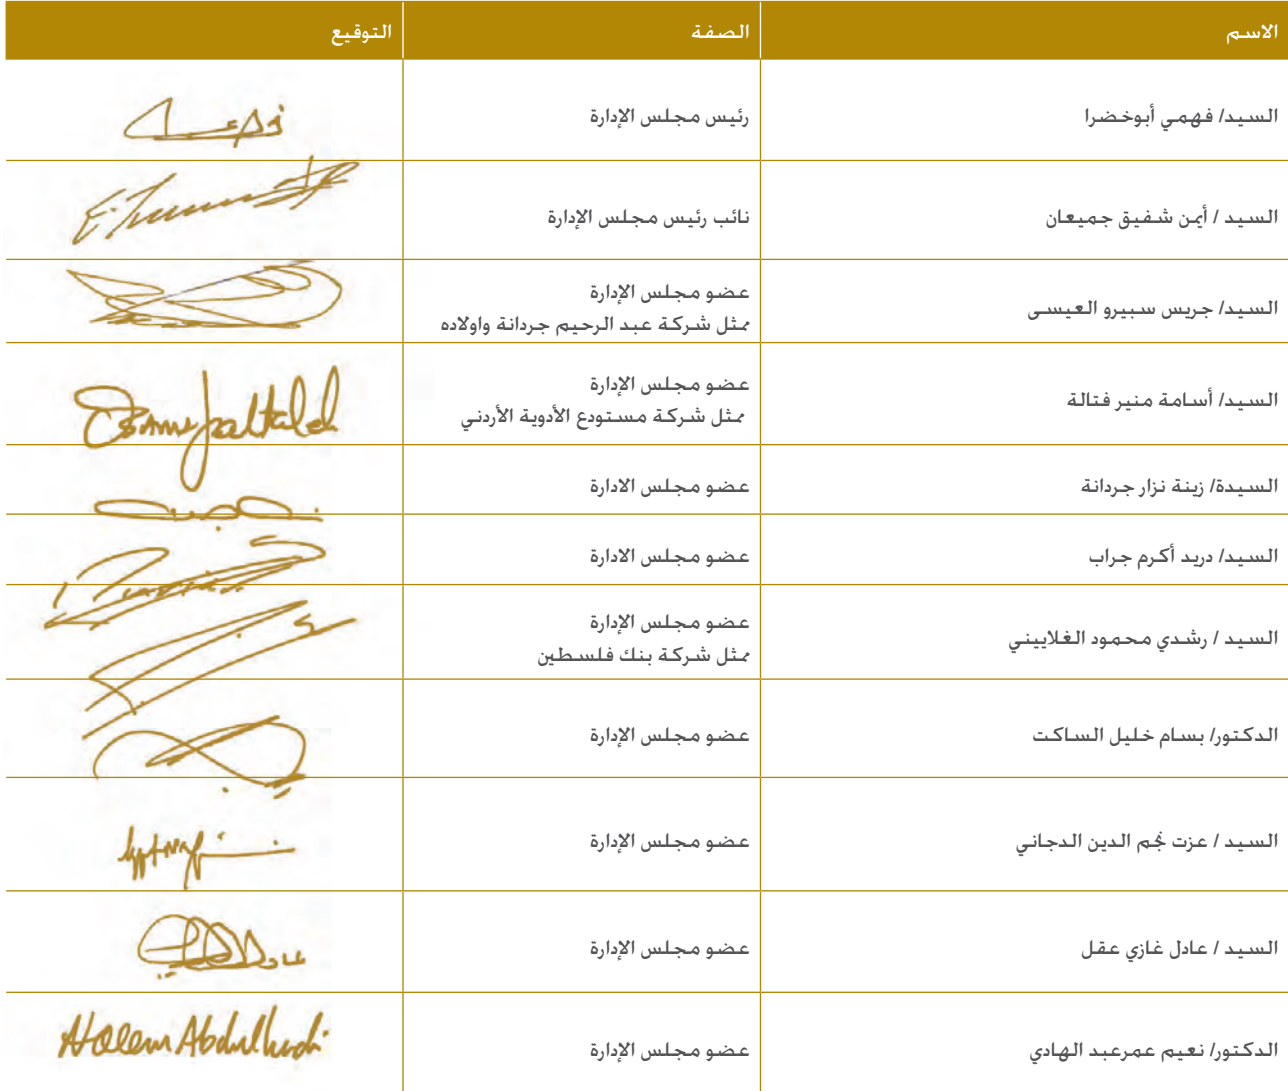 الاسم الصفة التوقيع
السيد/ فهمي أبوخضرا رئيس مجلس الإدارة
السيد / أيمن شفيق جميعان نائب رئيس مجلس الإدارة
السيد/ جريس سبيرو العيسى عضو مجلس الإدارة
ممثل شركة عبد الرحيم جردانة واولاده
السيد/ أسامة منير فتالة عضو مجلس الإدارة
ممثل شركة مستودع الأدوية الأردني
السيدة/ زينة نزار جردانة عضو مجلس الادارة
السيد/ دريد أكرم جراب عضو مجلس الادارة
السيد / رشدي محمود الغلاييني عضو مجلس الإدارة
ممثل شركة بنك فلسطين
الدكتور/ بسام خليل الساكت عضو مجلس الإدارة
السيد / عزت نجم الدين الدجاني عضو مجلس الإدارة
السيد / عادل غازي عقل عضو مجلس الإدارة
الدكتور/ نعيم عمرعبد الهادي عضو مجلس الإدارة